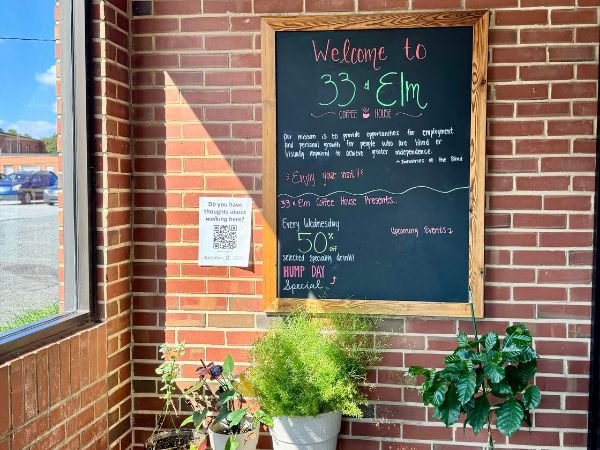 Welcome to
33 & Elm
COFFEE HOUSE
Our mission is to provide opportunities for employment
and personal growth for people who are blind or
visually impaired to achieve greater independence.
~ Industries of the Blind
Enjoy your visit!
33 & Elm Coffee House Presents..
Every Wednesday
50% off
selected specialty drink!
HUMP DAY
Special
Upcoming Events:
Do you have
thoughts about
walking here?